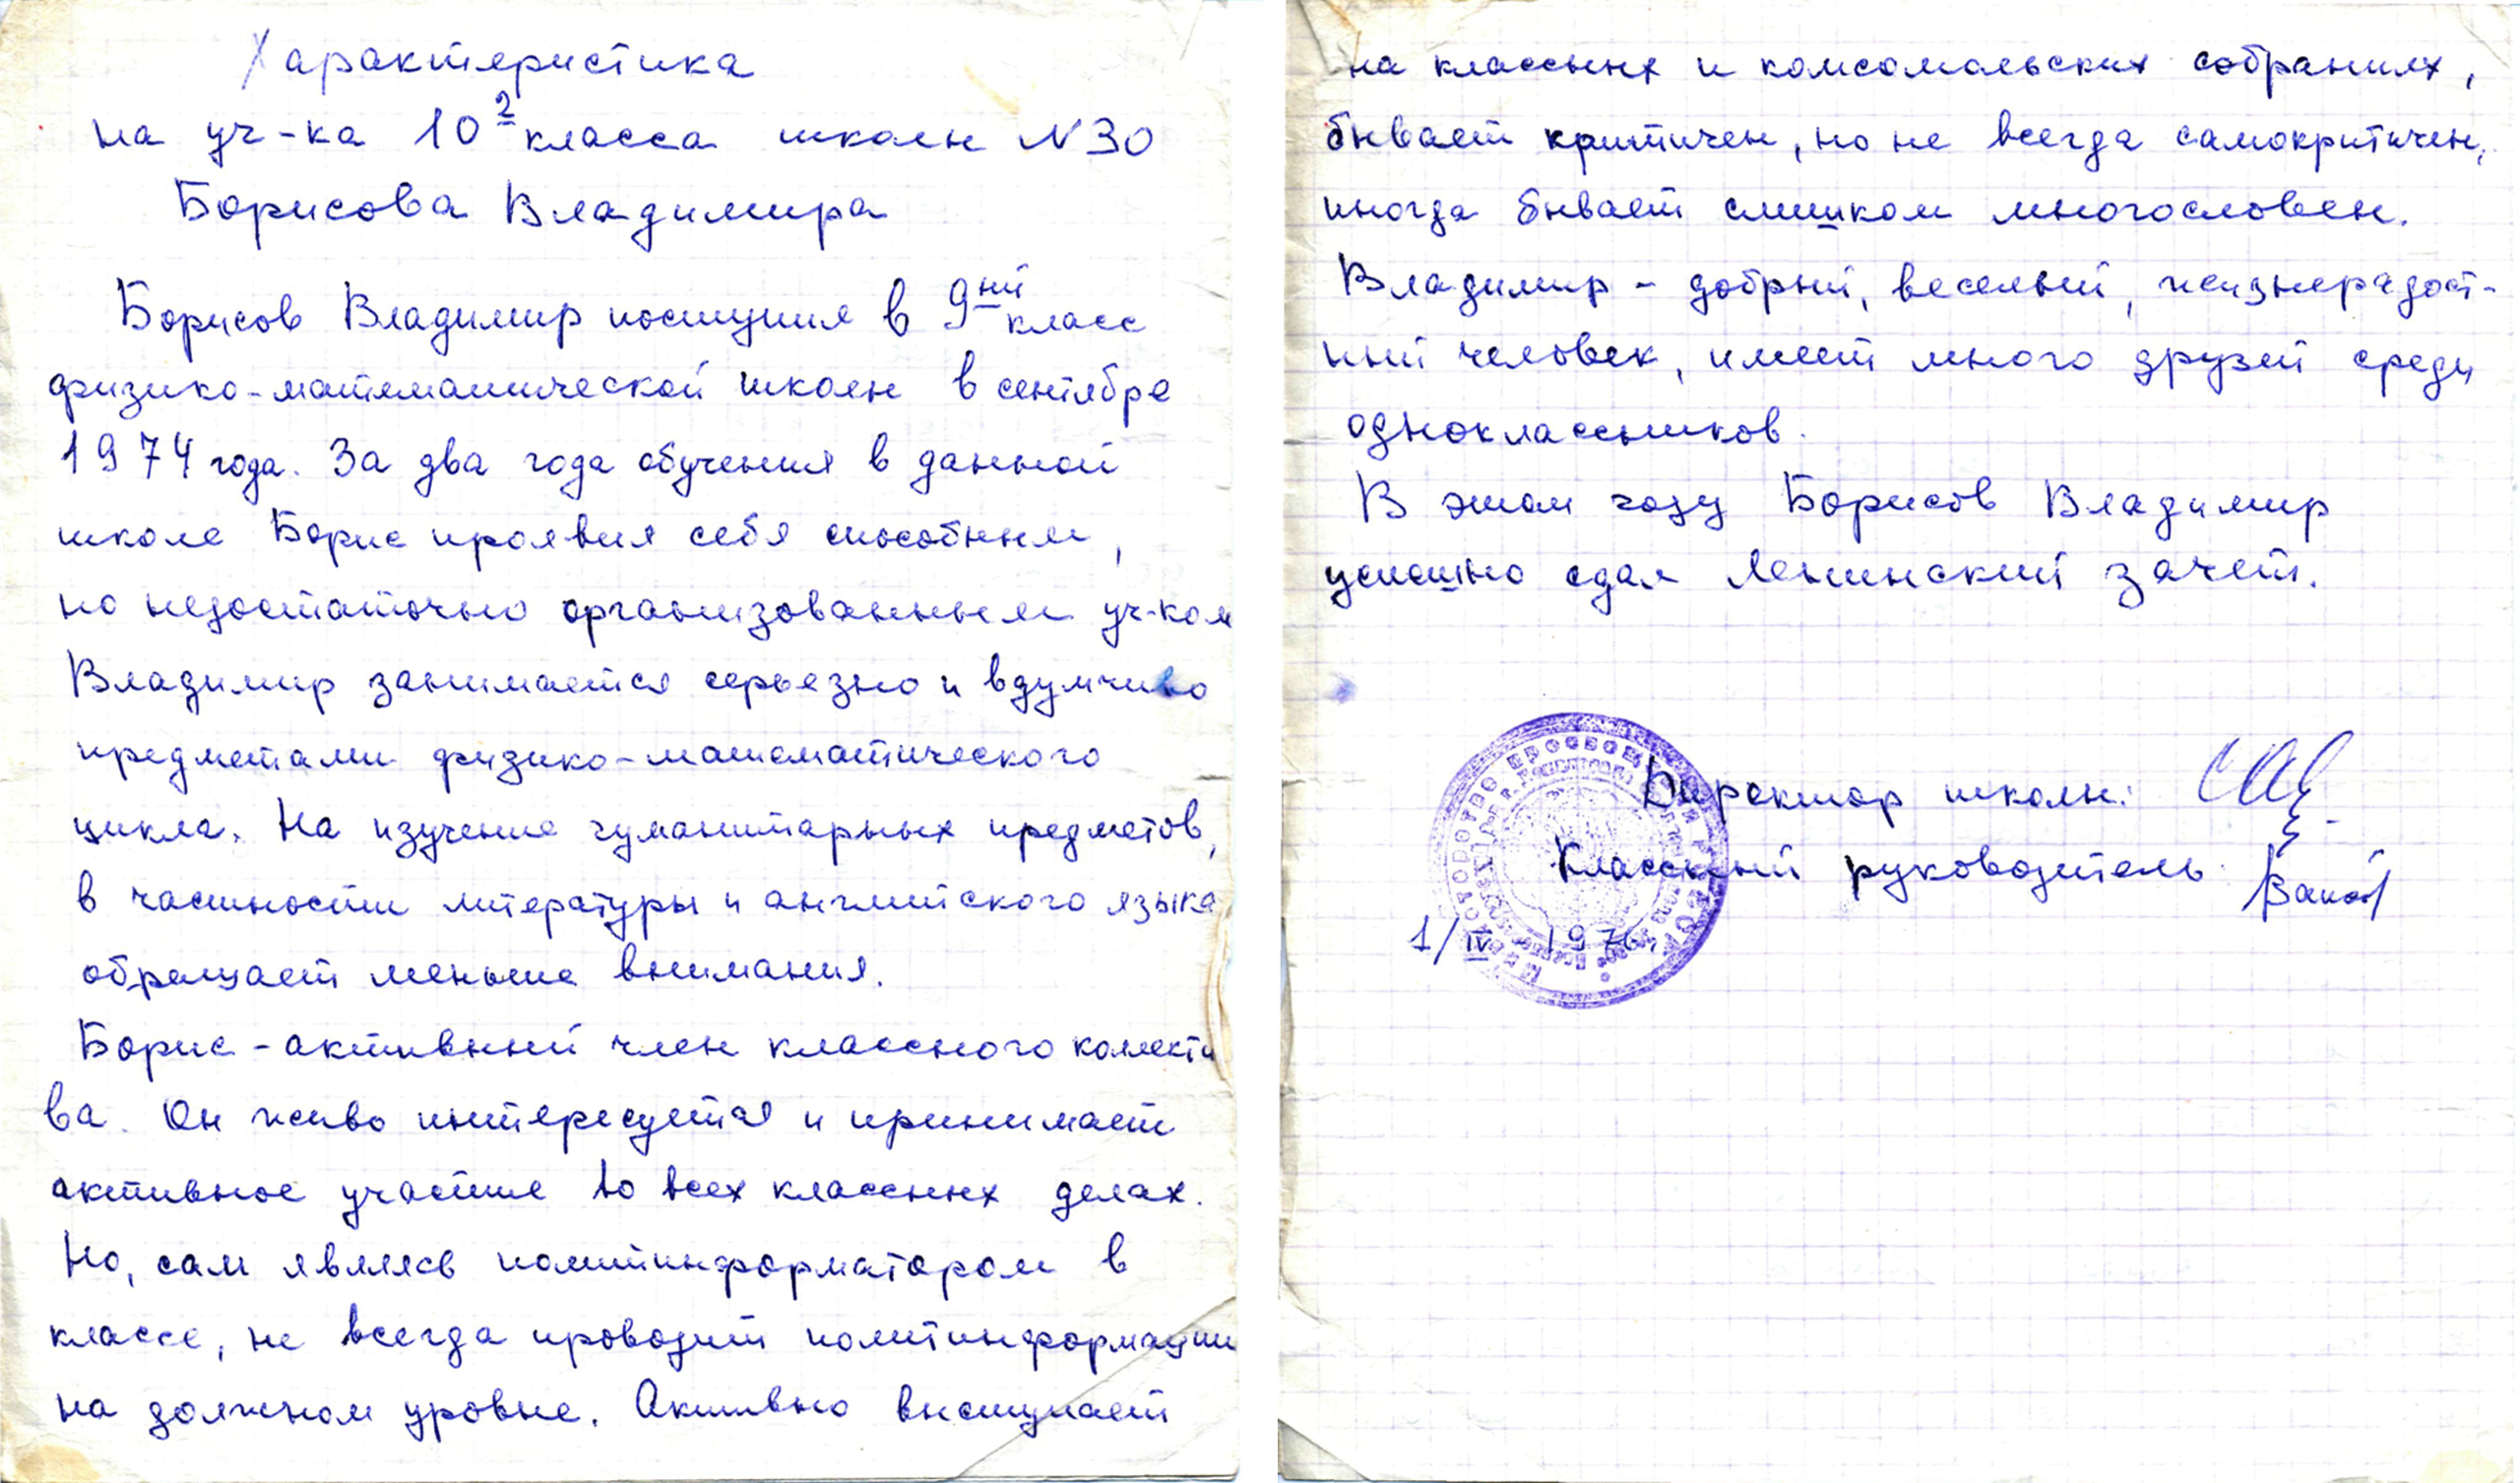 Характеристика
на уч-ка 10² класса школы N 30
Борисова Владимира
Борисов Владимир поступил в 9ый класс
физико-математической школы в сентябре
1974 года. За два года обучения в данной
школе Борис проявил себя способным,
но недостаточно организованным уч-ком
Владимир занимается серьезно и вдумчиво
предметами физико-математического
цикла. На изучение гуманитарных предметов,
в частности литературы и английского языка
обращает меньше внимания.
Борис - активный член классного коллекти
ва. Он живо интересуется и принимает
активное участие во всех классных делах.
Но, сам являясь политинформатором в
классе, не всегда проводит политинформации
на должном уровне. Активно выступает
на классных и комсомольских собраниях,
бывает критичен, но не всегда самокритичен,
иногда бывает слишком многословен.
Владимир - добрый, веселый, жизнерадост-
ный человек, имеет много друзей среди
одноклассников.
В этом году Борисов Владимир
успешно сдал Ленинский зачет.
Директор школы:
Классный руководитель
1/IV 1976